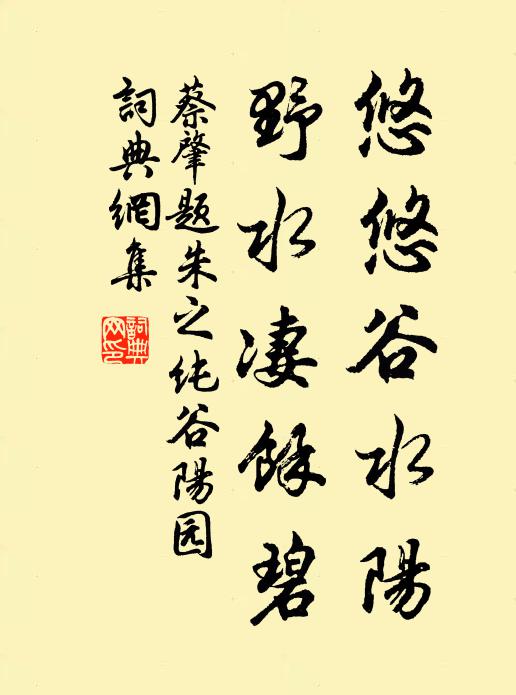 悠悠谷水陽
野水淒餘碧
蔡肇題朱之纯谷陽园
詞典網集
詞典網印